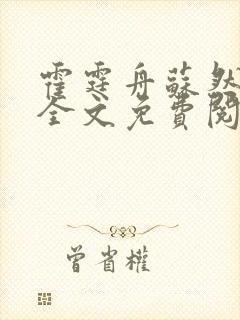 霍霆舟蘇然
全文免費閱
曾省權